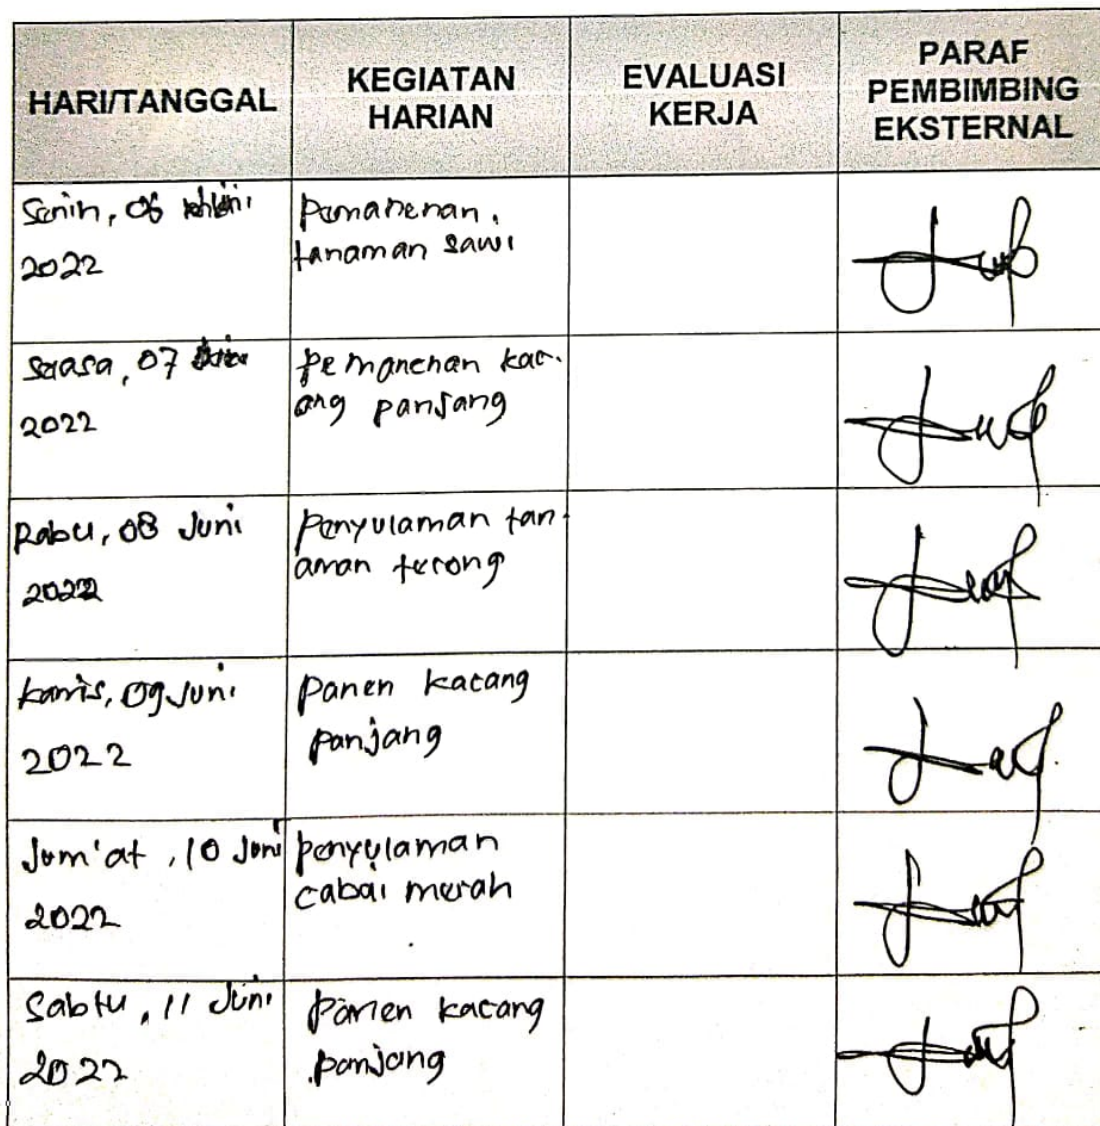 HARI/TANGGAL
KEGIATAN
HARIAN
EVALUASI
KERJA
PARAF
PEMBIMBING
EKSTERNAL
Senin, 06
2022
Pemanenan.
tanaman sawi
Selasa, 07
2022
Pemanenan kac-
ang panjang
Rabu, 08 Juni
2022
Penyulaman tan-
aman terong
Kamis, 09 Juni
2022
Panen kacang
panjang
Jum'at, 10 Juni
2022
Penyulaman
cabai merah
Sabtu, 11 Juni
2022
Panen kacang
panjang